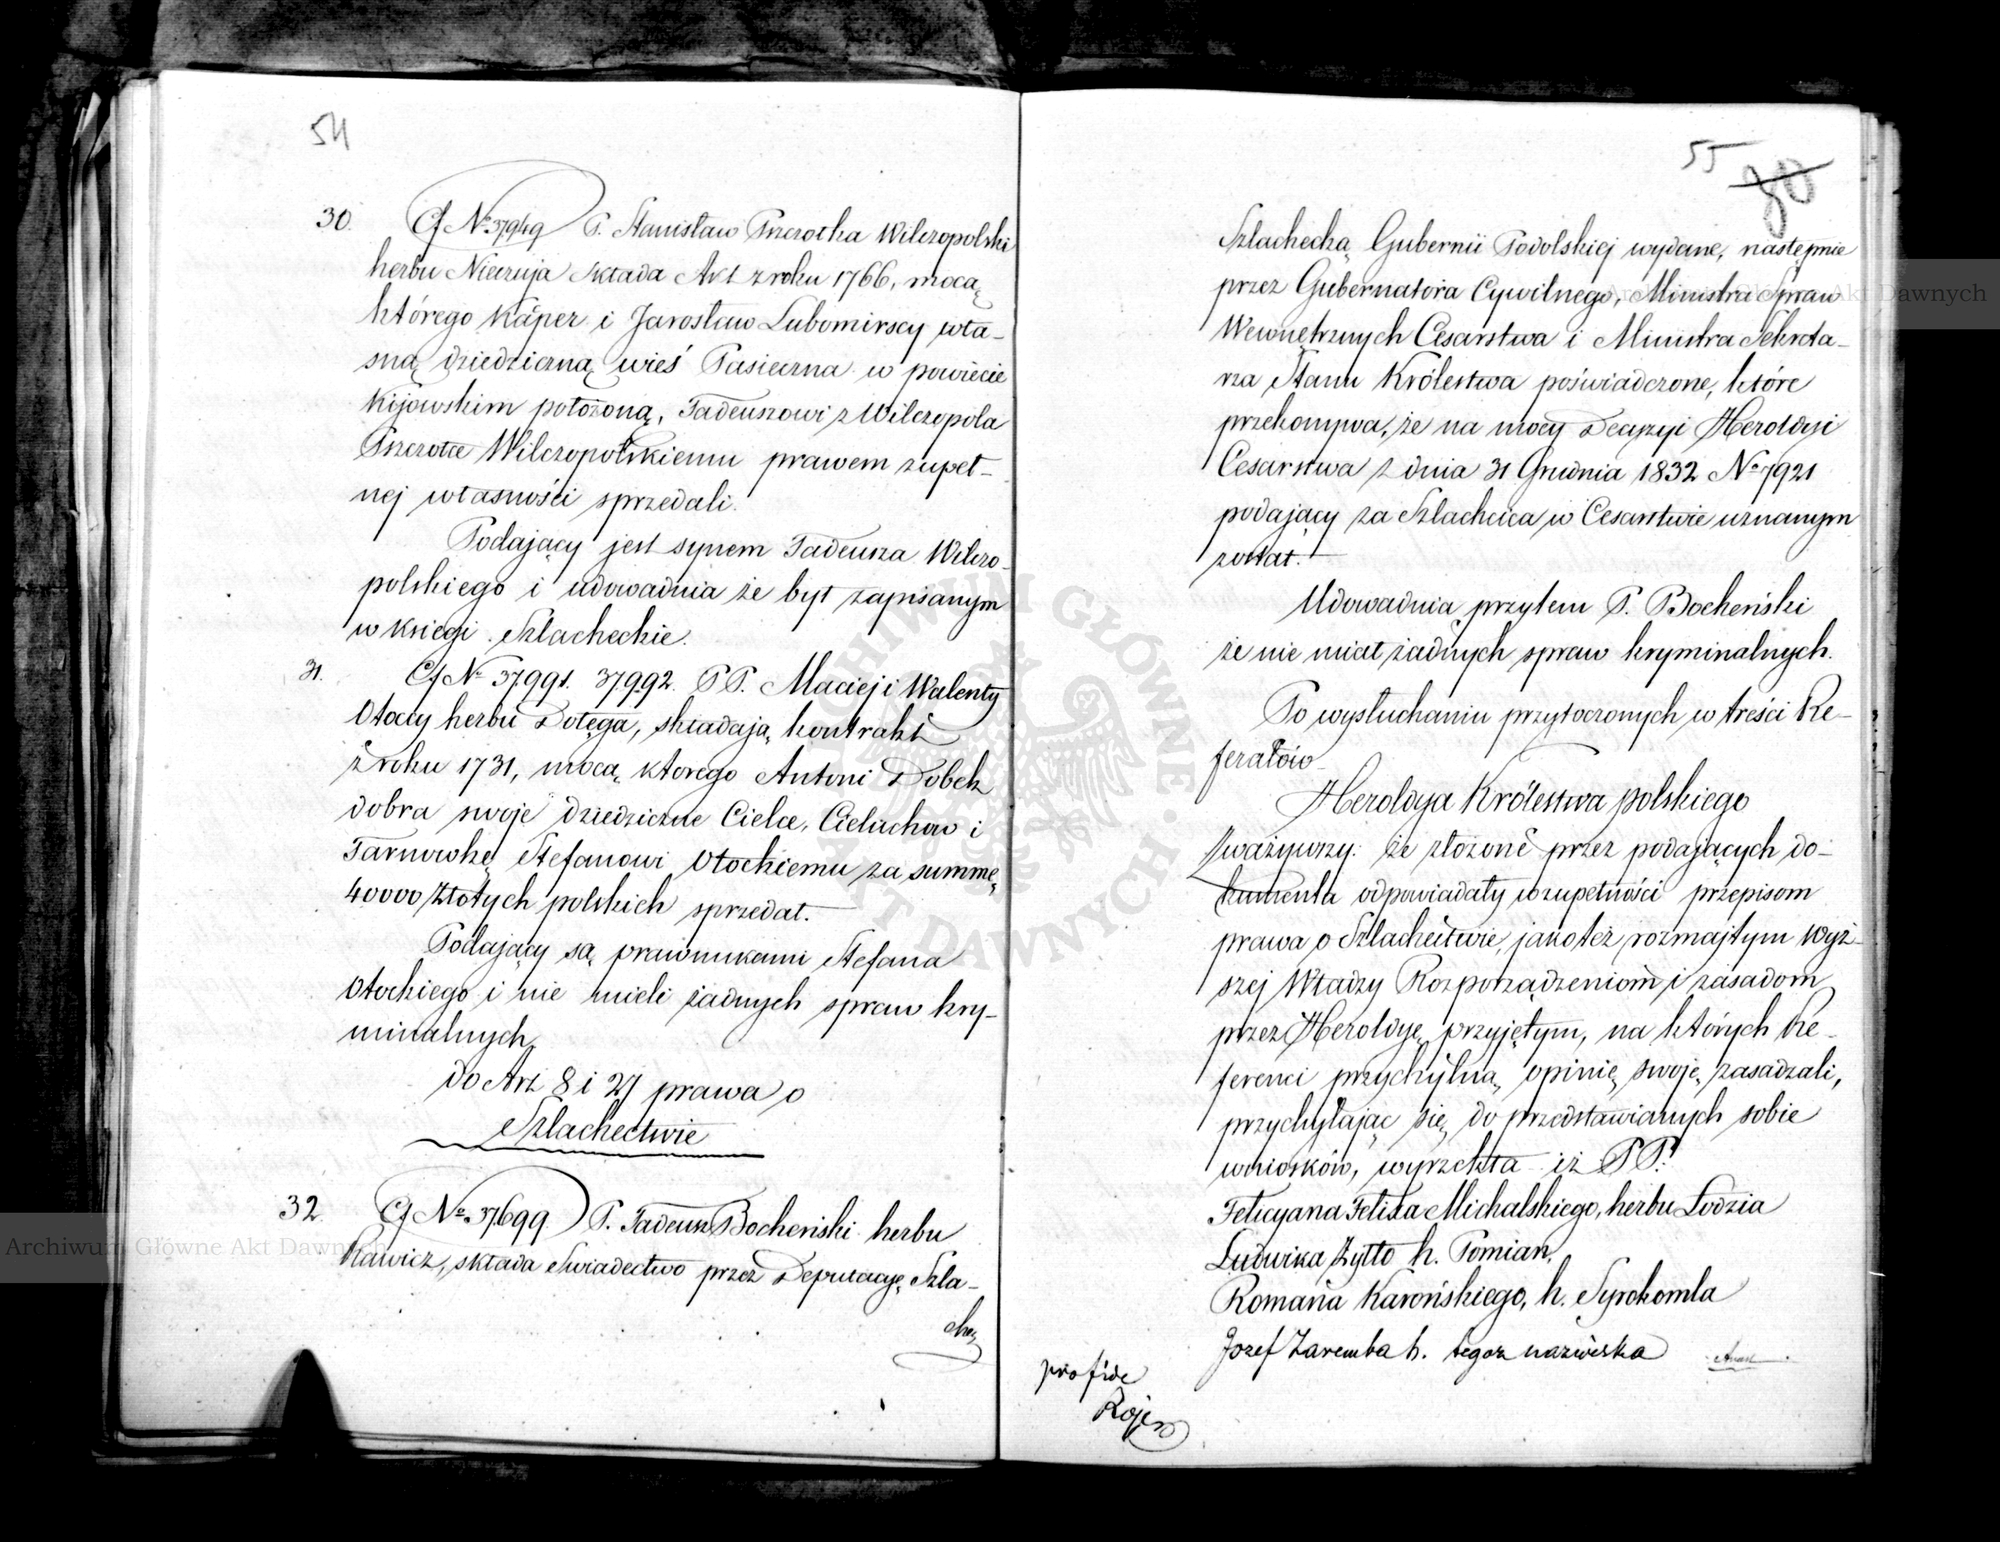 54
30. Cf № 37949 P. Stanisław Pszczołka Wilczopolski
herbu Nieczuja składa Akt z roku 1766, mocą
którego Kacper i Jarosław Lubomirscy wła-
sną dziedziczną wieś Pasieczna w powiecie
Kijowskim położoną, Tadeuszowi z Wilczopola
Wilczopolskiemu prawem zupeł-
nej własności sprzedali.
Podający jest synem Tadeusza Wilczo-
polskiego i udowadnia że był zapisanym
w księgi Szlacheckie.
31. Cf № 37991. 37992. PP. Maciej i Walenty
Otoccy herbu Dołęga, składają kontrakt
z roku 1731, mocą ktorego Antoni Dobek
dobra swoje dziedziczne Cielce, Cieluchow i
Tarnowkę Stefanowi Otockiemu za summę
40000 Złotych polskich sprzedał.
Podający są prawnukami Stefana
Otockiego i nie mieli żadnych spraw kry-
minalnych.
do Art 8 i 27 prawa o
Szlachectwie
32. Cf № 37699 P. Tadeusz Bocheński herbu
Rawicz, składa Swiadectwo przez Deputacyę Szla-
checką
55 80
Szlachecką Gubernii Podolskiej wydane, następnie
przez Gubernatora Cywilnego, Ministra Spraw
Wewnętrznych Cesarstwa i Ministra Sekreta-
rza Stanu Królestwa poświadczone, które
przekonywa, że na mocy Decyzyi Heroldyi
Cesarstwa z dnia 31 Grudnia 1832 № 7921
podający za Szlachcica w Cesarstwie uznanym
został.
Udowadnia przytem P. Bocheński
że nie miał żadnych spraw kryminalnych.
Po wysłuchaniu przytoczonych w treści Re-
feratów
Heroldya Królestwa polskiego
Zważywszy: że złożone przez podających do-
kumenta odpowiadały w zupełności przepisom
prawa o Szlachectwie, jakoteż rozmajtym Wyż-
szej Władzy Rozporządzeniom i zasadom
przez Heroldyę przyjętym, na których Re-
ferenci przychylną opinię swoję zasadzali,
przychylając się do przedstawianych sobie
wniosków, wyrzekła iż PP.
Felicyana Felixa Michalskiego, herbu Lodzia
Ludwika Żytło h. Pomian,
Romana Karońskiego, h. Syrokomla
Jozef Zaremba h. tegoż nazwiska
pro fide
Archiwum Główne Akt Dawnych
Archiwum Główne Akt Dawnych
ARCHIWUM GŁÓWNE AKT DAWNYCH